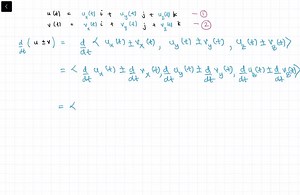 u(t) = u_x(t) i + u_y(t) j + u_z(t) k — ①
v(t) = v_x(t) i + v_y(t) j + v_z(t) k — ②
d/dt (u ± v) = d/dt < u_x(t) ± v_x(t), u_y(t) ± v_y(t), u_z(t) ± v_z(t) >
= < d/dt u_x(t) ± d/dt v_x(t), d/dt u_y(t) ± d/dt v_y(t), d/dt u_z(t) ± d/dt v_z(t) >
= <